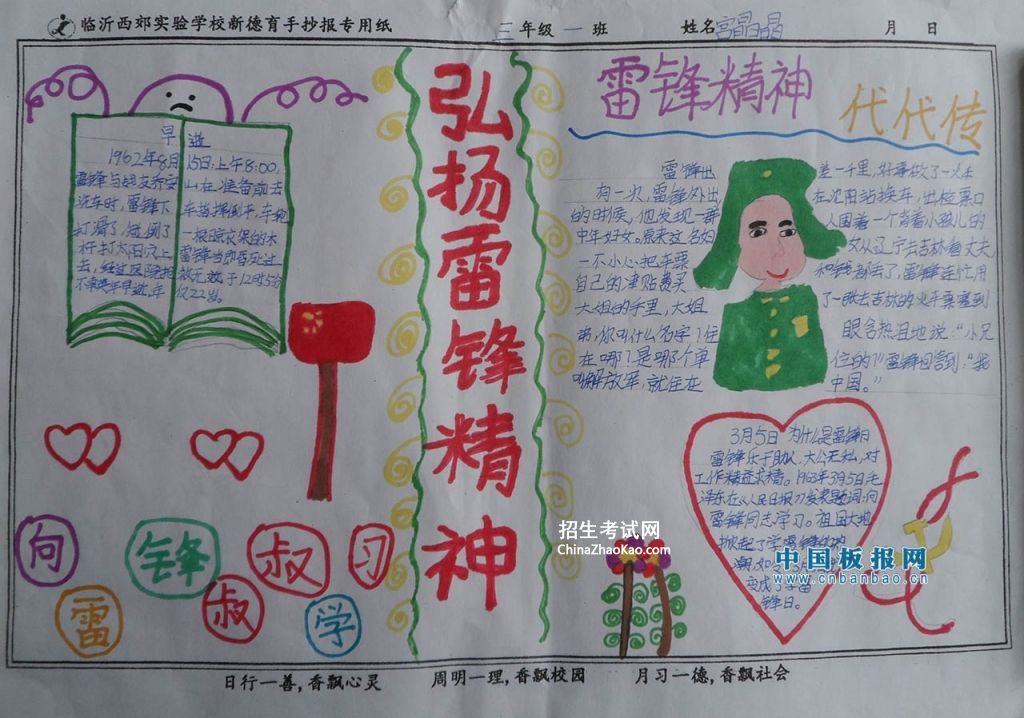 临沂西郊实验学校新德育手抄报专用纸 三年级一班 姓名宫晶晶 月 日
早逝
1962年8月15日，上午8:00，
洗车时，雷锋下车指挥倒车，车轮
打滑了，碰倒了一根晾衣架的木
杆打太阳穴上
仅22岁。
弘扬雷锋精神
雷锋精神
代代传
雷锋出差一千里，好事做了一火车
有一次，雷锋外出在沈阳站换车，出检票口
的时候，他发现一群人围着一个背着小孩儿的
中年妇女。原来这名妇女从辽宁去吉林看丈夫
一不小心把车票和钱
自己的津贴费买了一张去吉林的火车票塞到
大姐的手里，大姐眼含热泪地说："小兄
弟，你叫什么名字？住
在哪？是哪个单位的？"雷锋回答到："我
叫解放军，就住在中国。"
3月5日为什么是雷锋日
雷锋乐于助人，大公无私，对
工作精益求精。1963年3月5日毛
泽东在《人民日报》发表题词：向
雷锋同志学习。祖国大地
掀起了学雷锋
变成了学雷
锋日。
向 雷 锋 叔 叔 学 习
招生考试网
ChinaZhaoKao.com
中国板报网
www.cnbanbao.cn
日行一善，香飘心灵 周明一理，香飘校园 月习一德，香飘社会